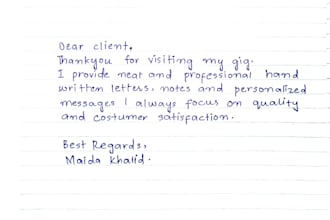 Dear client,
Thankyou for visiting my gig.
I provide neat and professional hand
written letters, notes and personalized
messages I always focus on quality
and costumer satisfaction.
Best Regards,
Maida Khalid.